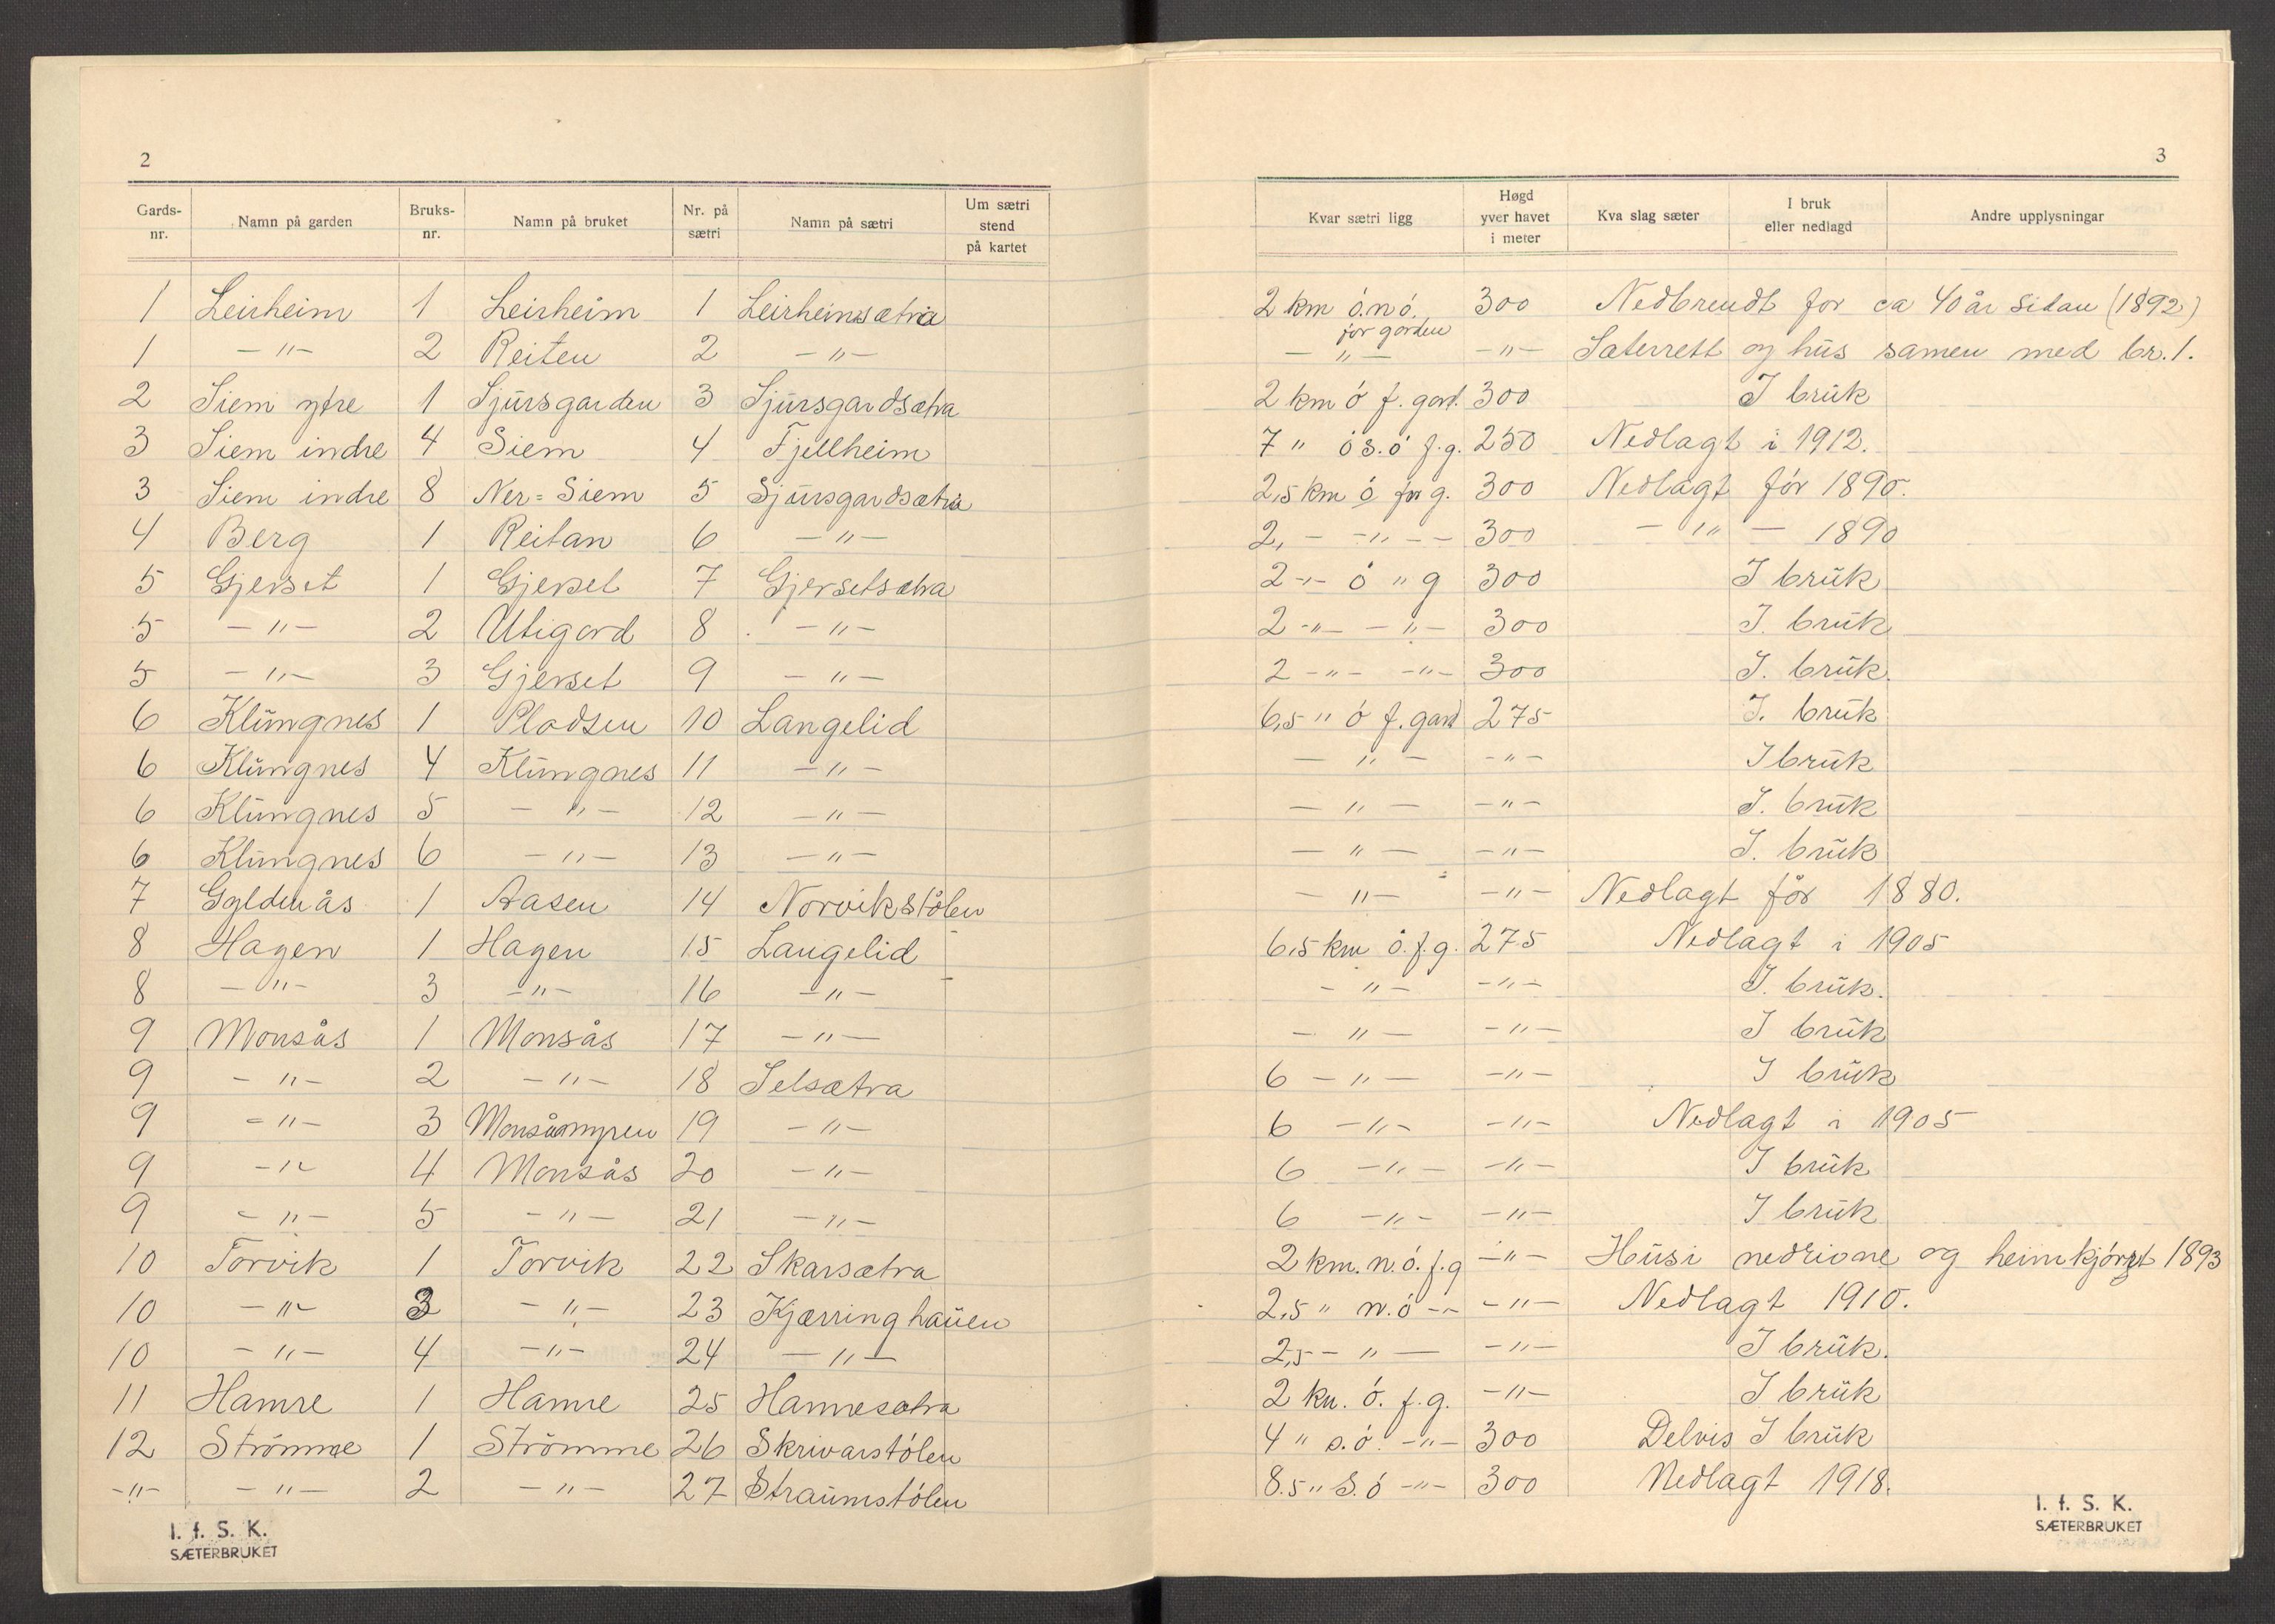 2
Gards-nr. Namn på garden Bruks-nr. Namn på bruket Nr. på sætri Namn på sætri Um sætri stend på kartet
1 Leirheim 1 Leirheim 1 Leirheimsætra
1 -"- 2 Reiten 2 -"-
2 Siem ytre 1 Sjursgarden 3 Sjursgardsætra
3 Siem indre 4 Siem 4 Fjellheim
3 Siem indre 8 Ner=Siem 5 Sjursgardsætra
4 Berg 1 Reitan 6 -"-
5 Gjerset 1 Gjerset 7 Gjersetsætra
5 -"- 2 Utigard 8 -"-
5 -"- 3 Gjerset 9 -"-
6 Klŭngnes 1 Pladsen 10 Langelid
6 Klŭngnes 4 Klŭngnes 11 -"-
6 Klŭngnes 5 -"- 12 -"-
6 Klŭngnes 6 -"- 13 -"-
7 Gyldenås 1 Aasen 14 Norvikstølen
8 Hagen 1 Hagen 15 Langelid
8 -"- 3 -"- 16 -"-
9 Monsås 1 Monsås 17 -"-
9 -"- 2 -"- 18 Selsætra
9 -"- 3 Monsåsmyren 19 -"-
9 -"- 4 Monsås 20 -"-
9 -"- 5 -"- 21 -"-
10 Torvik 1 Torvik 22 Skarsætra
10 -"- 3 -"- 23 Kjærringhaŭen
10 -"- 4 -"- 24 -"-
11 Hamre 1 Hamre 25 Hamresætra
12 Strömme 1 Strömme 26 Skrivarstólen
-"- -"- 2 -"- 27 Straŭmstólen
I. f. S. K.
SÆTERBRUKET
3
Kvar sætri ligg Høgd yver havet i meter Kva slag sæter I bruk eller nedlagd Andre upplysningar
2 km ó.n ó. for garden 300 Nedbrendt for ca 40 år sidan (1892)
-"- -"- Sæterrett og hŭs samen med br. 1.
2 km ó f. gard. 300 I brŭk
7 " ó s.ó f.g. 250 Nedlagt i 1912.
2,5 km ó for g. 300 Nedlagt fór 1890.
2, - -"- - 300 -"- 1890
2 -"- ó " g 300 I brŭk
2 -"- -"- 300 I. brŭk
2 -"- -"- 300 I. brŭk.
6,5 " ó f. gard 275 I. brŭk
-"- -"- I brŭk
-"- -"- I. brŭk
-"- -"- I. brŭk
-"- -"- Nedlagt før 1880.
6,5 km ó.f.g. 275 Nedlagt i 1905
-"- -"- I. brŭk.
-"- -"- I brŭk
6 -"- -"- I brŭk
6 -"- -"- Nedlagt i 1905
6 -"- -"- I brŭk
6 -"- -"- I brŭk
2 km. n.ó. f.g -"- Hŭsi nedrivne og heimkjórt 1893
2,5 " n.ó -"- -"- Nedlagt 1910.
2,5 -"- -"- I brŭk.
2 km. ó. f.g. -"- I brŭk
4 " s.ó. -"- 300 Delvis I brŭk
8.5 " S.ó -"- 300 Nedlagt 1918.
I. f. S. K.
SÆTERBRUKET